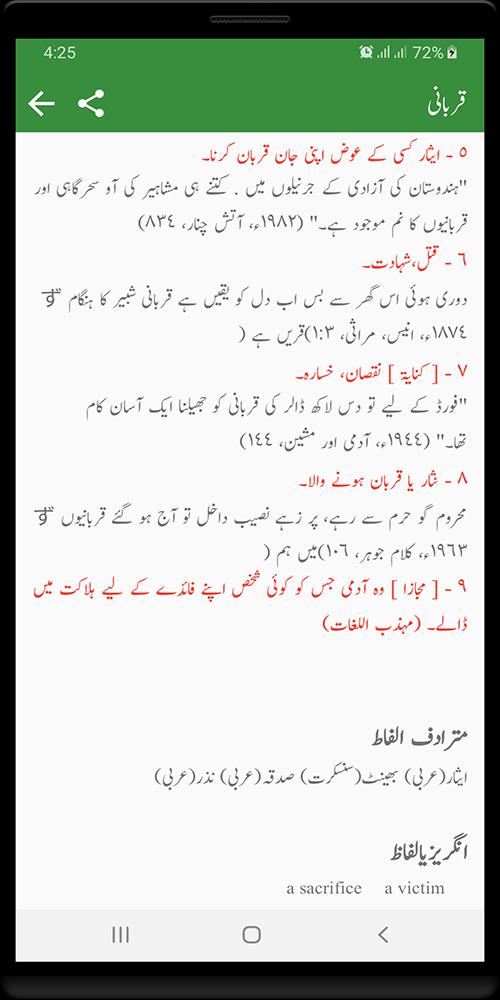 4:25 72%
قربانی
٥ - ایثار کسی کے عوض اپنی جان قربان کرنا۔
"ہندوستان کی آزادی کے جرنیلوں میں . کتنے ہی مشاہیر کی آو سحر گاہی اور
قربانیوں کا نم موجود ہے۔" (١٩٨٢ء، آتش چنار، ٨٣٤)
٦ - قتل،شہادت۔
دوری ہوئی اس گھر سے بس اب دل کو یقیں ہے قربانی شبیر کا ہنگام
١٨٧٤ء، انیس، مراثی، ١:٣)قریں ہے (
٧ - [ کنایۃ ] نقصان، خسارہ۔
"فورڈ کے لیے تو دس لاکھ ڈالر کی قربانی کو جھیلنا ایک آسان کام
تھا۔" (١٩٤٤ء، آدمی اور مشین، ١٤٤)
٨ - نثار یا قربان ہونے والا۔
محروم گو حرم سے رہے، پر زہے نصیب داخل تو آج ہو گئے قربانیوں
١٩٦٣ء، کلام جوہر، ١٠٦)میں ہم (
٩ - [ مجازا ] وہ آدمی جس کو کوئی شخص اپنے فائدے کے لیے ہلاکت میں
ڈالے۔ (مہذب اللغات)
مترادف الفاظ
ایثار(عربی) بھینٹ(سنسکرت) صدقہ(عربی) نذر(عربی)
انگریزیالفاظ
a sacrifice a victim